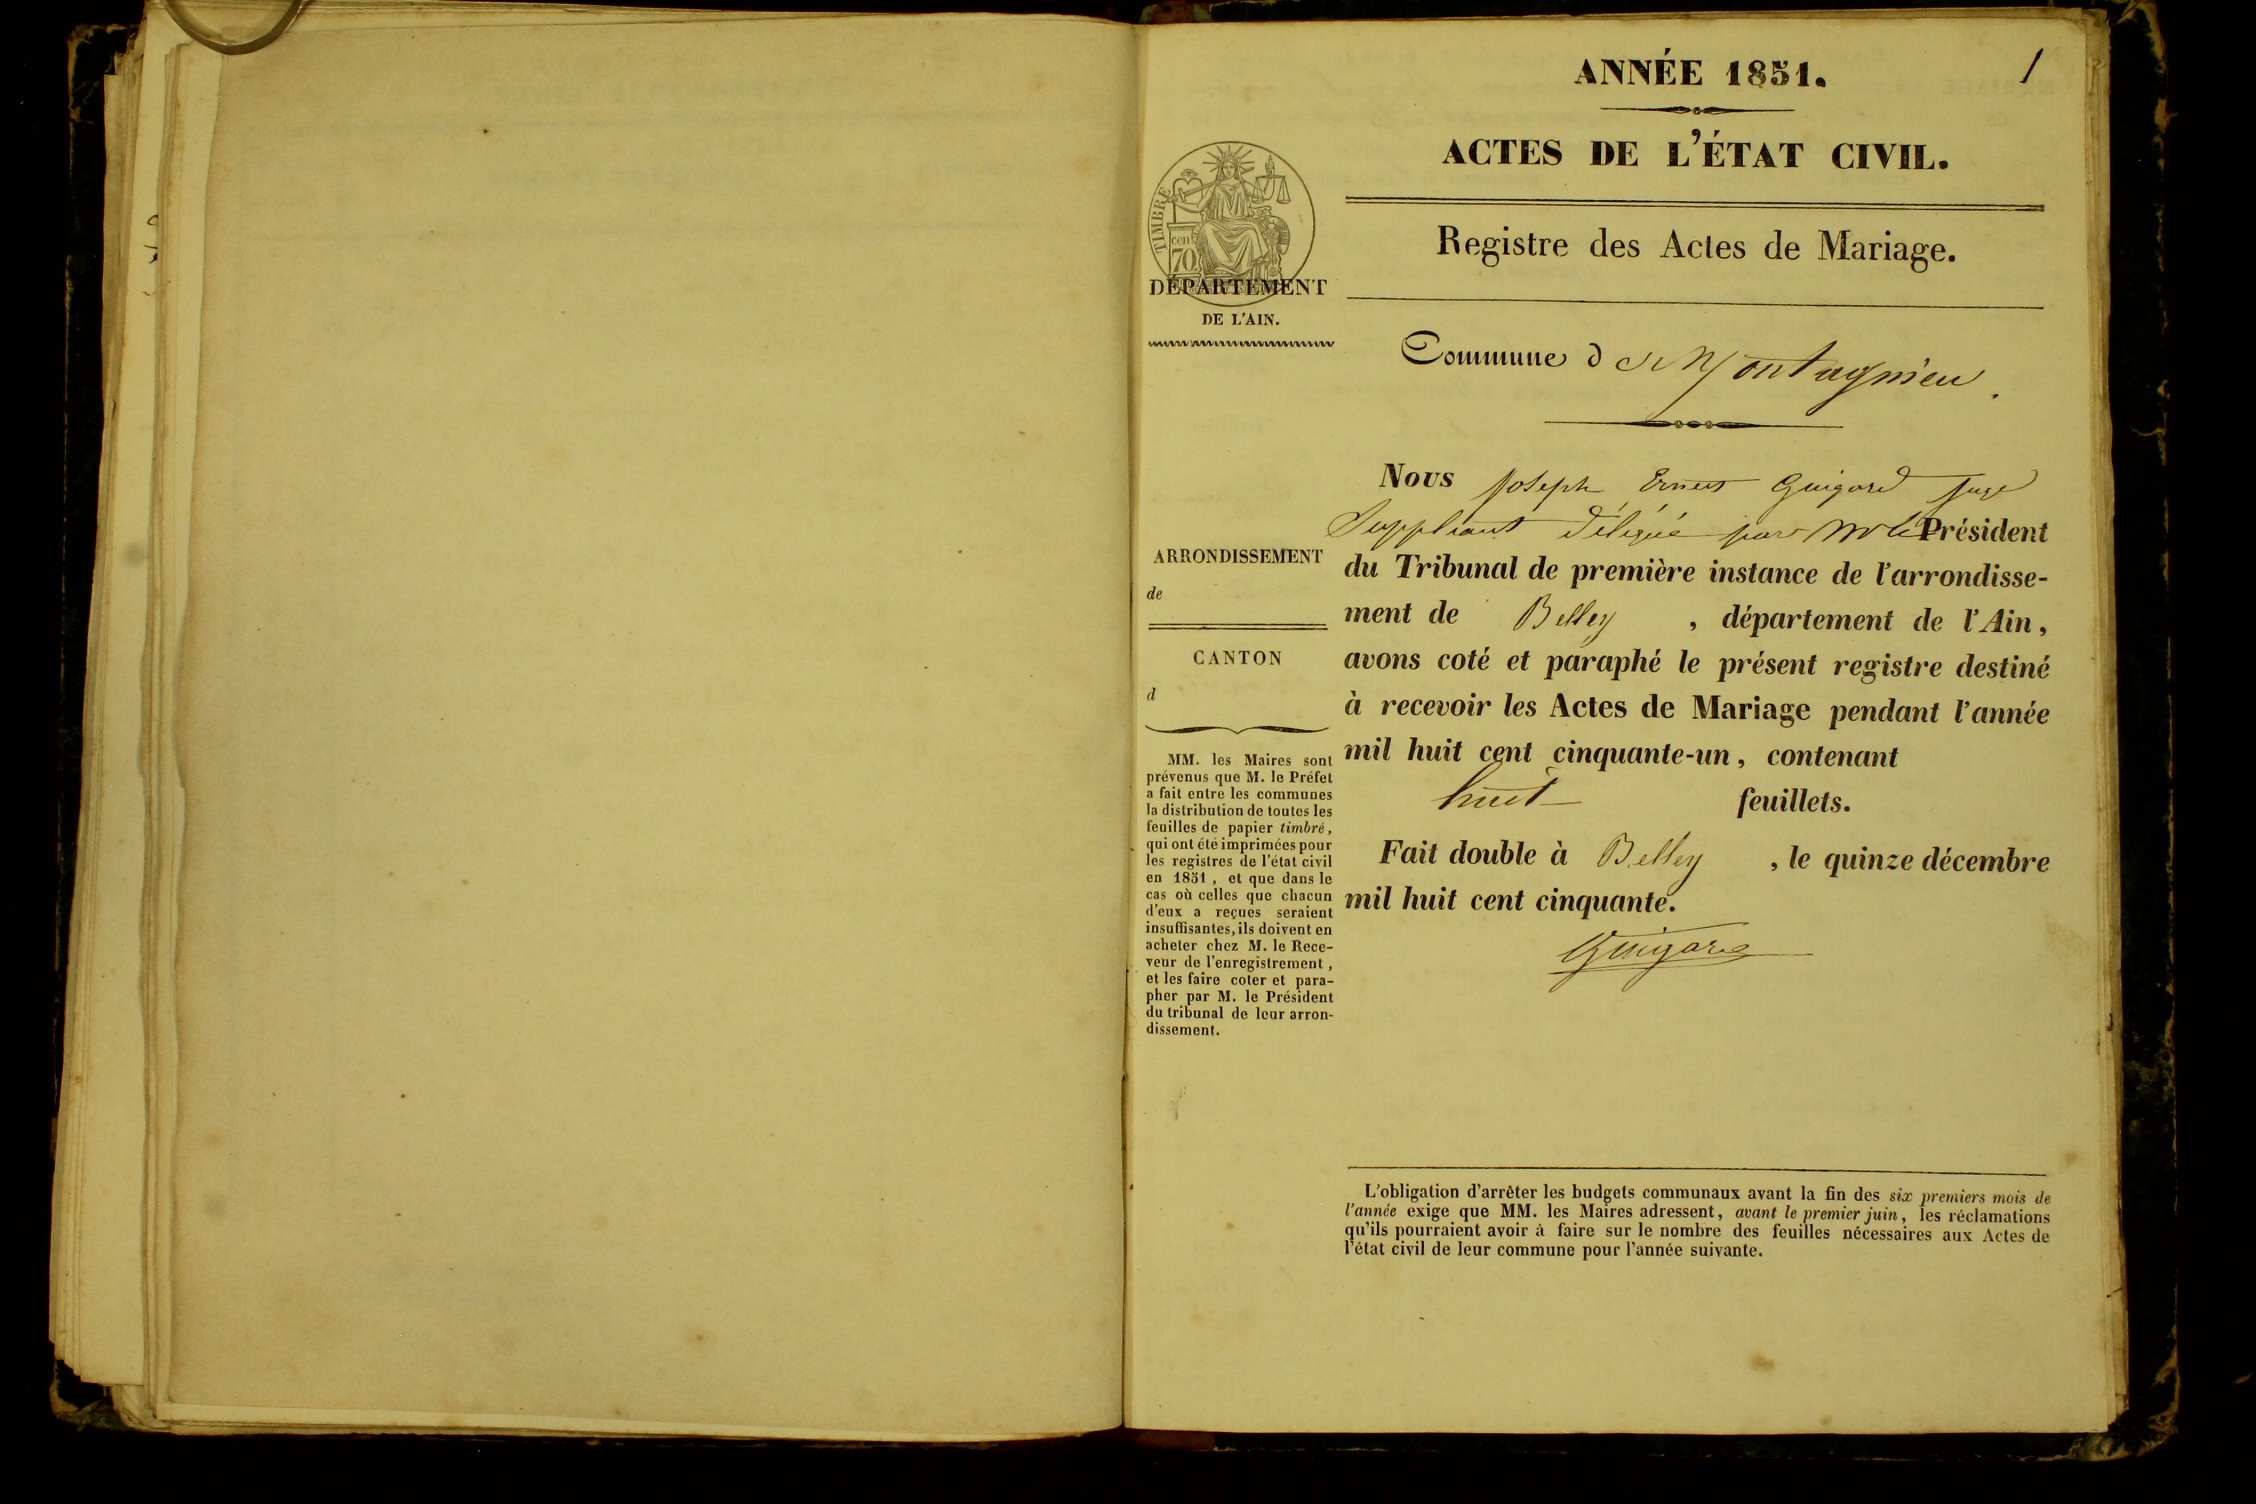 ANNÉE 1851.
1
ACTES DE L'ÉTAT CIVIL.
Registre des Actes de Mariage.
TIMBRE
cent
70
DÉPARTEMENT
DE L'AIN.
Commune de Montagnieu.
Nous Joseph Ernest Guigard Juge
Suppléant délégué par Mr le Président
du Tribunal de première instance de l'arrondisse-
ment de Belley, département de l'Ain,
avons coté et paraphé le présent registre destiné
à recevoir les Actes de Mariage pendant l'année
mil huit cent cinquante-un, contenant
huit feuillets.
Fait double à Belley, le quinze décembre
mil huit cent cinquante.
Guigard
ARRONDISSEMENT
de
CANTON
d
MM. les Maires sont
prévenus que M. le Préfet
a fait entre les communes
la distribution de toutes les
feuilles de papier timbré,
qui ont été imprimées pour
les registres de l'état civil
en 1851, et que dans le
cas où celles que chacun
d'eux a reçues seraient
insuffisantes, ils doivent en
acheter chez M. le Rece-
veur de l'enregistrement,
et les faire coter et para-
pher par M. le Président
du tribunal de leur arron-
dissement.
L'obligation d'arrêter les budgets communaux avant la fin des six premiers mois de
l'année exige que MM. les Maires adressent, avant le premier juin, les réclamations
qu'ils pourraient avoir à faire sur le nombre des feuilles nécessaires aux Actes de
l'état civil de leur commune pour l'année suivante.